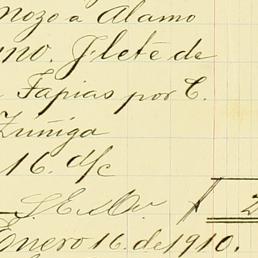 mozo a Alamo
uno. Flete de
Tapias por C.
Zuñiga
16. d/c
S. E. u O. $ 2
Enero 16. de 1910.